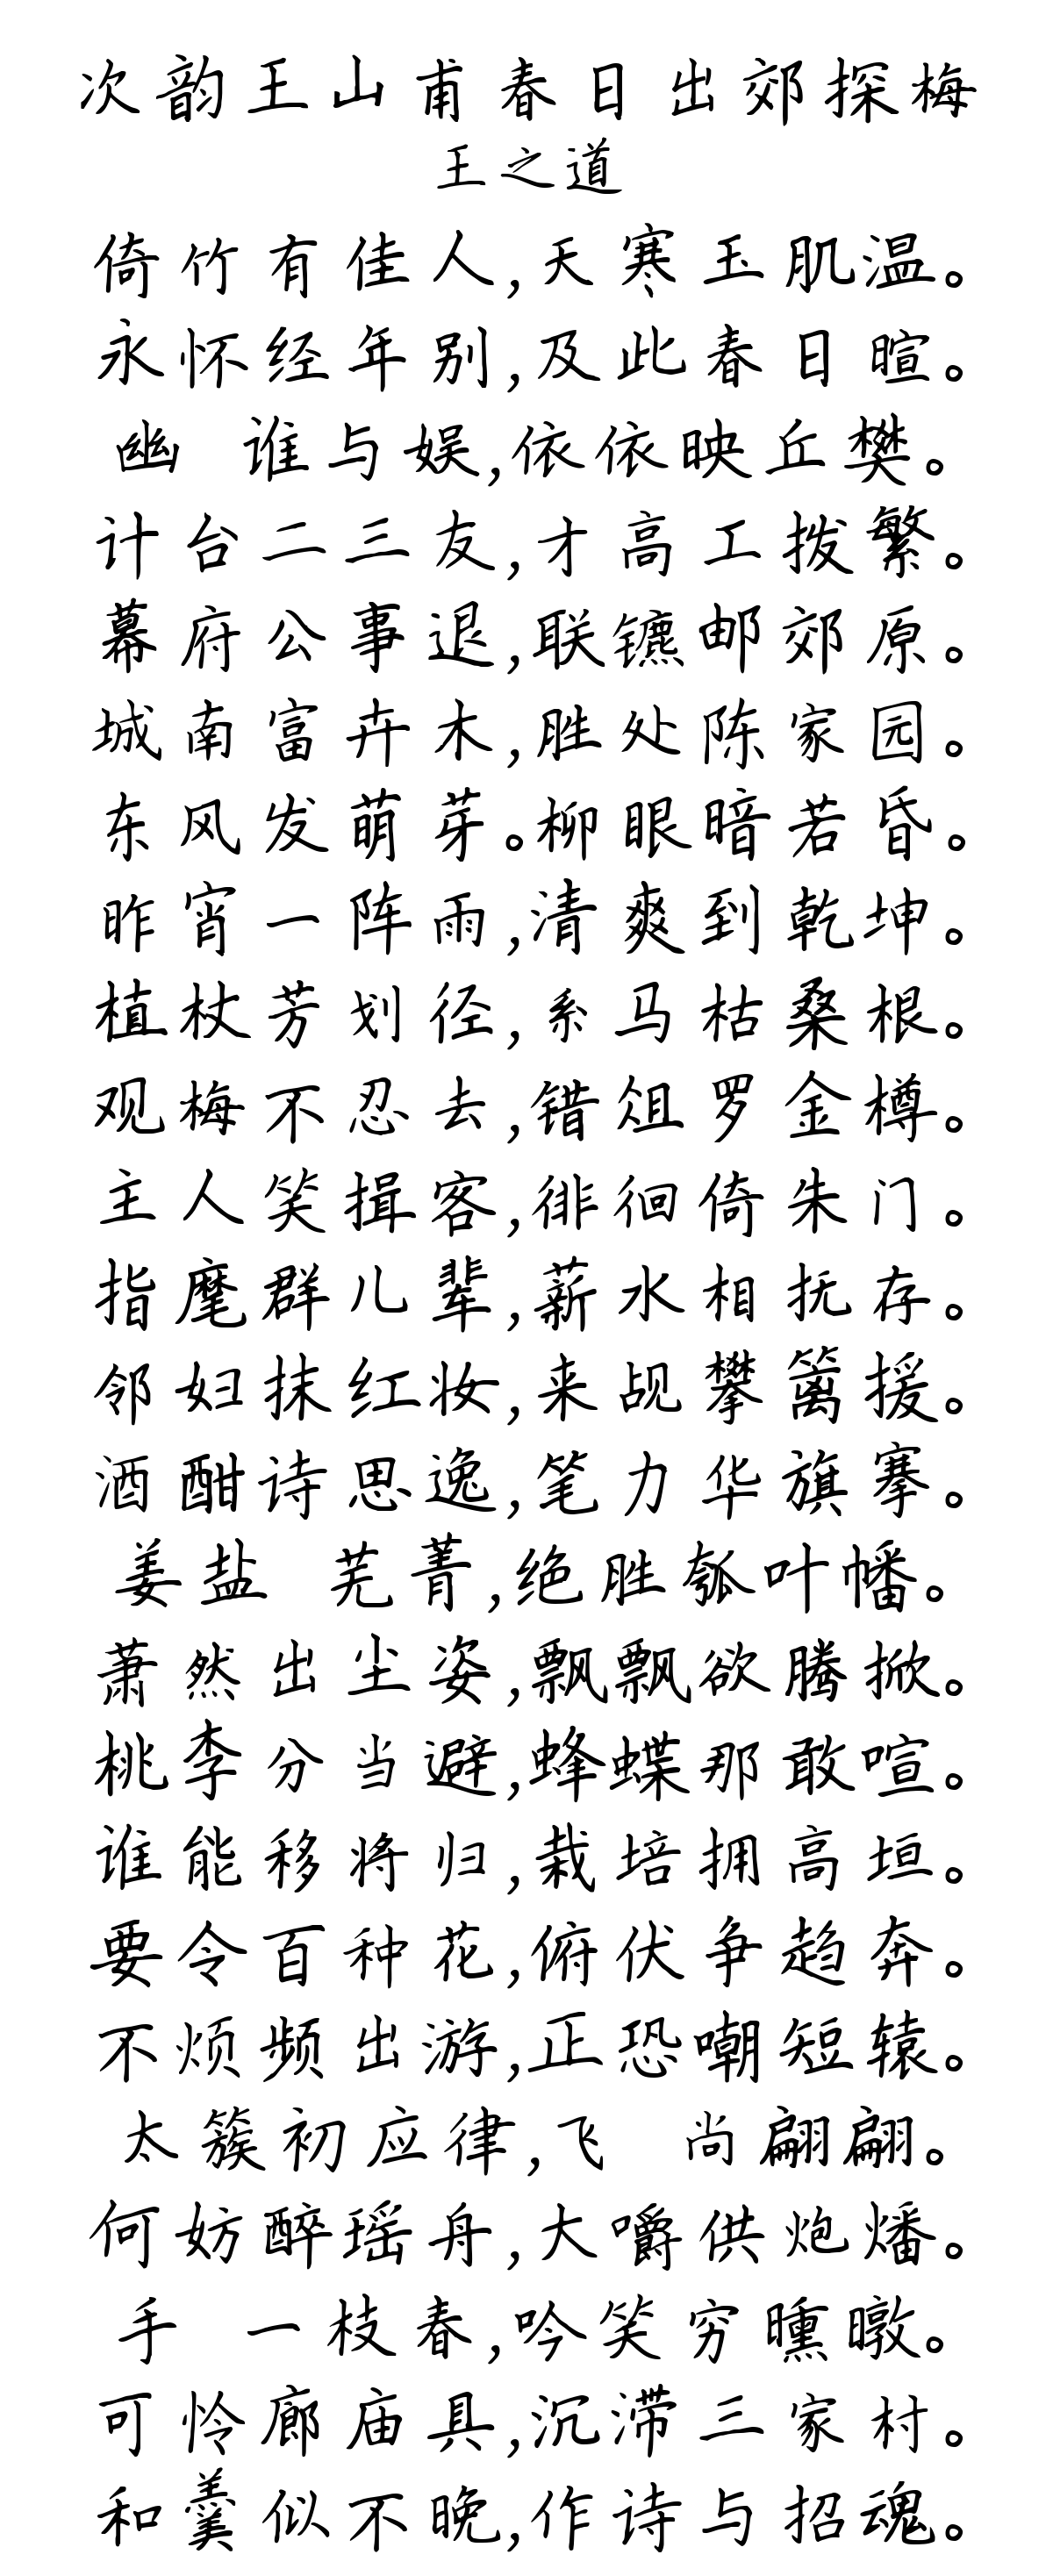 次韵王山甫春日出郊探梅
王之道
倚竹有佳人,天寒玉肌温。
永怀经年别,及此春日暄。
幽 谁与娱,依依映丘樊。
计台二三友,才高工拨繁。
幕府公事退,联镳邮郊原。
城南富卉木,胜处陈家园。
东风发萌芽。柳眼暗若昏。
昨宵一阵雨,清爽到乾坤。
植杖芳划径,系马枯桑根。
观梅不忍去,错俎罗金樽。
主人笑揖客,徘徊倚朱门。
指麾群儿辈,薪水相抚存。
邻妇抹红妆,来觇攀篱援。
酒酣诗思逸,笔力华旗搴。
姜盐 芜菁,绝胜瓠叶幡。
萧然出尘姿,飘飘欲腾掀。
桃李分当避,蜂蝶那敢喧。
谁能移将归,栽培拥高垣。
要令百种花,俯伏争趋奔。
不烦频出游,正恐嘲短辕。
太簇初应律,飞 尚翩翩。
何妨醉瑶舟,大嚼供炮燔。
手 一枝春,吟笑穷曛暾。
可怜廊庙具,沉滞三家村。
和羹似不晚,作诗与招魂。